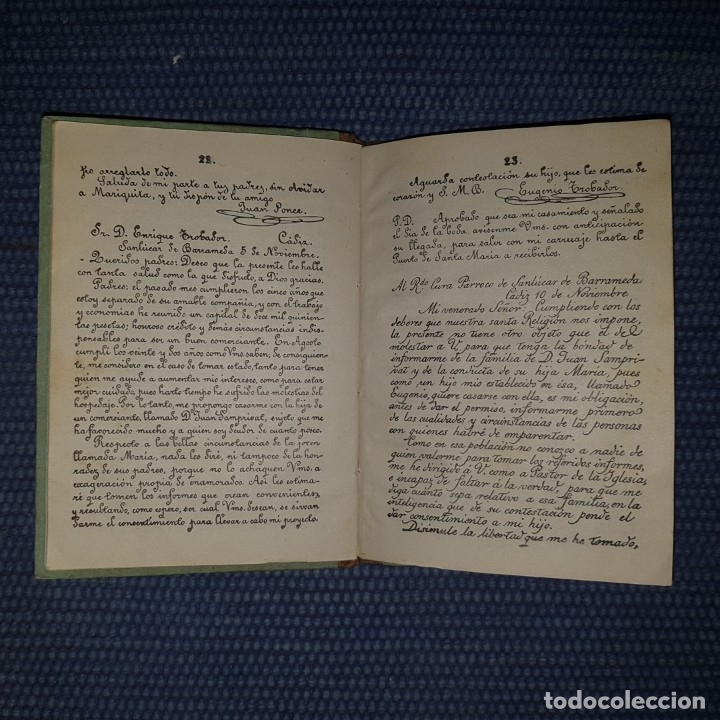 22.
jio arreglarlo todo.
Saluda de mi parte a tus padres, sin olvidar
a Mariquita, y tu dispón de tu amigo
Juan Ponce.
Sr. D. Enrique Trobador. Cádiz.
Sanlúcar de Barrameda 5 de Noviembre.
Queridos padres: Deseo que la presente les halle
con tanta salud como la que disfruto, a Dios gracias.
Padres: el pasado mes cumplieron los cinco años que
estoy separado de su amable compañía, y con el trabajo
y economías he reunido un capital de doce mil quinien-
tas pesetas; honroso crédito y demás circunstancias indis-
pensables para ser un buen comerciante. En Agosto
cumplí los veinte y dos años como Vms. saben; de consiguien-
te, me considero en el caso de tomar estado, tanto para tener
quien me ayude a aumentar mis intereses, como para estar
mejor cuidado, pues harto tiempo he sufrido las molestias del
hospedaje. Por lo tanto, me propongo casarme con la hija de
un comerciante, llamado D. Juan Sampriat, sujeto que me
ha favorecido mucho y a quien soy deudor de cuanto poseo.
Respecto a las bellas circunstancias de la joven
llamada María, nada les diré, ni tampoco de la hon-
radez de sus padres, porque no lo achaquen Vms. a
exageración propia de enamorados. Así les estima-
ré que tomen los informes que crean convenientes,
y resultando, como espero, ser cual Vms. desean, se sirvan
darme el consentimiento para llevar a cabo mi proyecto.
23.
Aguarda contestación su hijo, que les estima de
corazón y S. M. B. Eugenio Trobador.
P. D. Aprobado que sea mi casamiento y señalado
el día de la boda, avísenme Vms. con anticipación
su llegada, para salir con mi carruaje hasta el
Puerto de Santa María a recibirlos.
Al Rdo. Cura Párroco de Sanlúcar de Barrameda
Cádiz 10 de Noviembre.
Mi venerado Señor: Cumpliendo con los
deberes que nuestra santa Religión nos impone,
la presente no tiene otro objeto que el de
molestar a V. para que tenga la bondad de
informarme de la familia de D. Juan Sampri-
vat y de la conducta de su hija María; pues
como un hijo mío establecido en ésa, llamado
Eugenio, quiere casarse con ella, es mi obligación,
antes de dar el permiso, informarme primero
de las cualidades y circunstancias de las personas
con quienes habré de emparentar.
Como en esa población no conozco a nadie de
quien valerme para tomar los referidos informes,
me he dirigido á V. como a Pastor de la Iglesia,
e incapaz de faltar á la verdad, para que me
diga cuanto sepa relativo a esa familia; en la
inteligencia que de su contestación pende el
dar consentimiento a mi hijo.
Disimule la libertad que me he tomado,
todocoleccion
todocoleccion.net